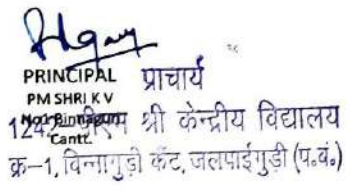 PRINCIPAL प्राचार्य
PM SHRI K V
No1 Binnaguri
124 श्री केन्द्रीय विद्यालय
Cantt.
क्र-1, विन्नागुड़ी कैंट, जलपाईगुड़ी (प.बं.)